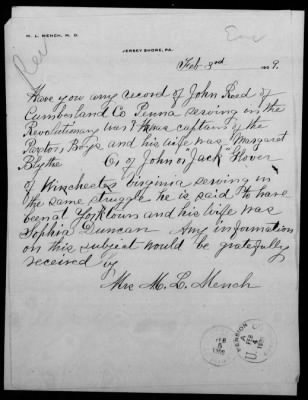 M. L. MENCH, M. D.
Rev
JERSEY SHORE, PA.
Feb 3rd 9.
Have you any record of John Reed of
Cumberland Co Penna serving in the
Revolutionary war? He was captain of the
Paxton Boys and his wife was Margaret
Blythe Or of John or "Jack" Glover
of Winchester Virginia serving in
the same struggle he is said to have
been at Yorktown and his wife was
Sophia Duncan Any information
on this subject would be gratefully
received by
Mrs M. L. Mench
FEB
FEB
4